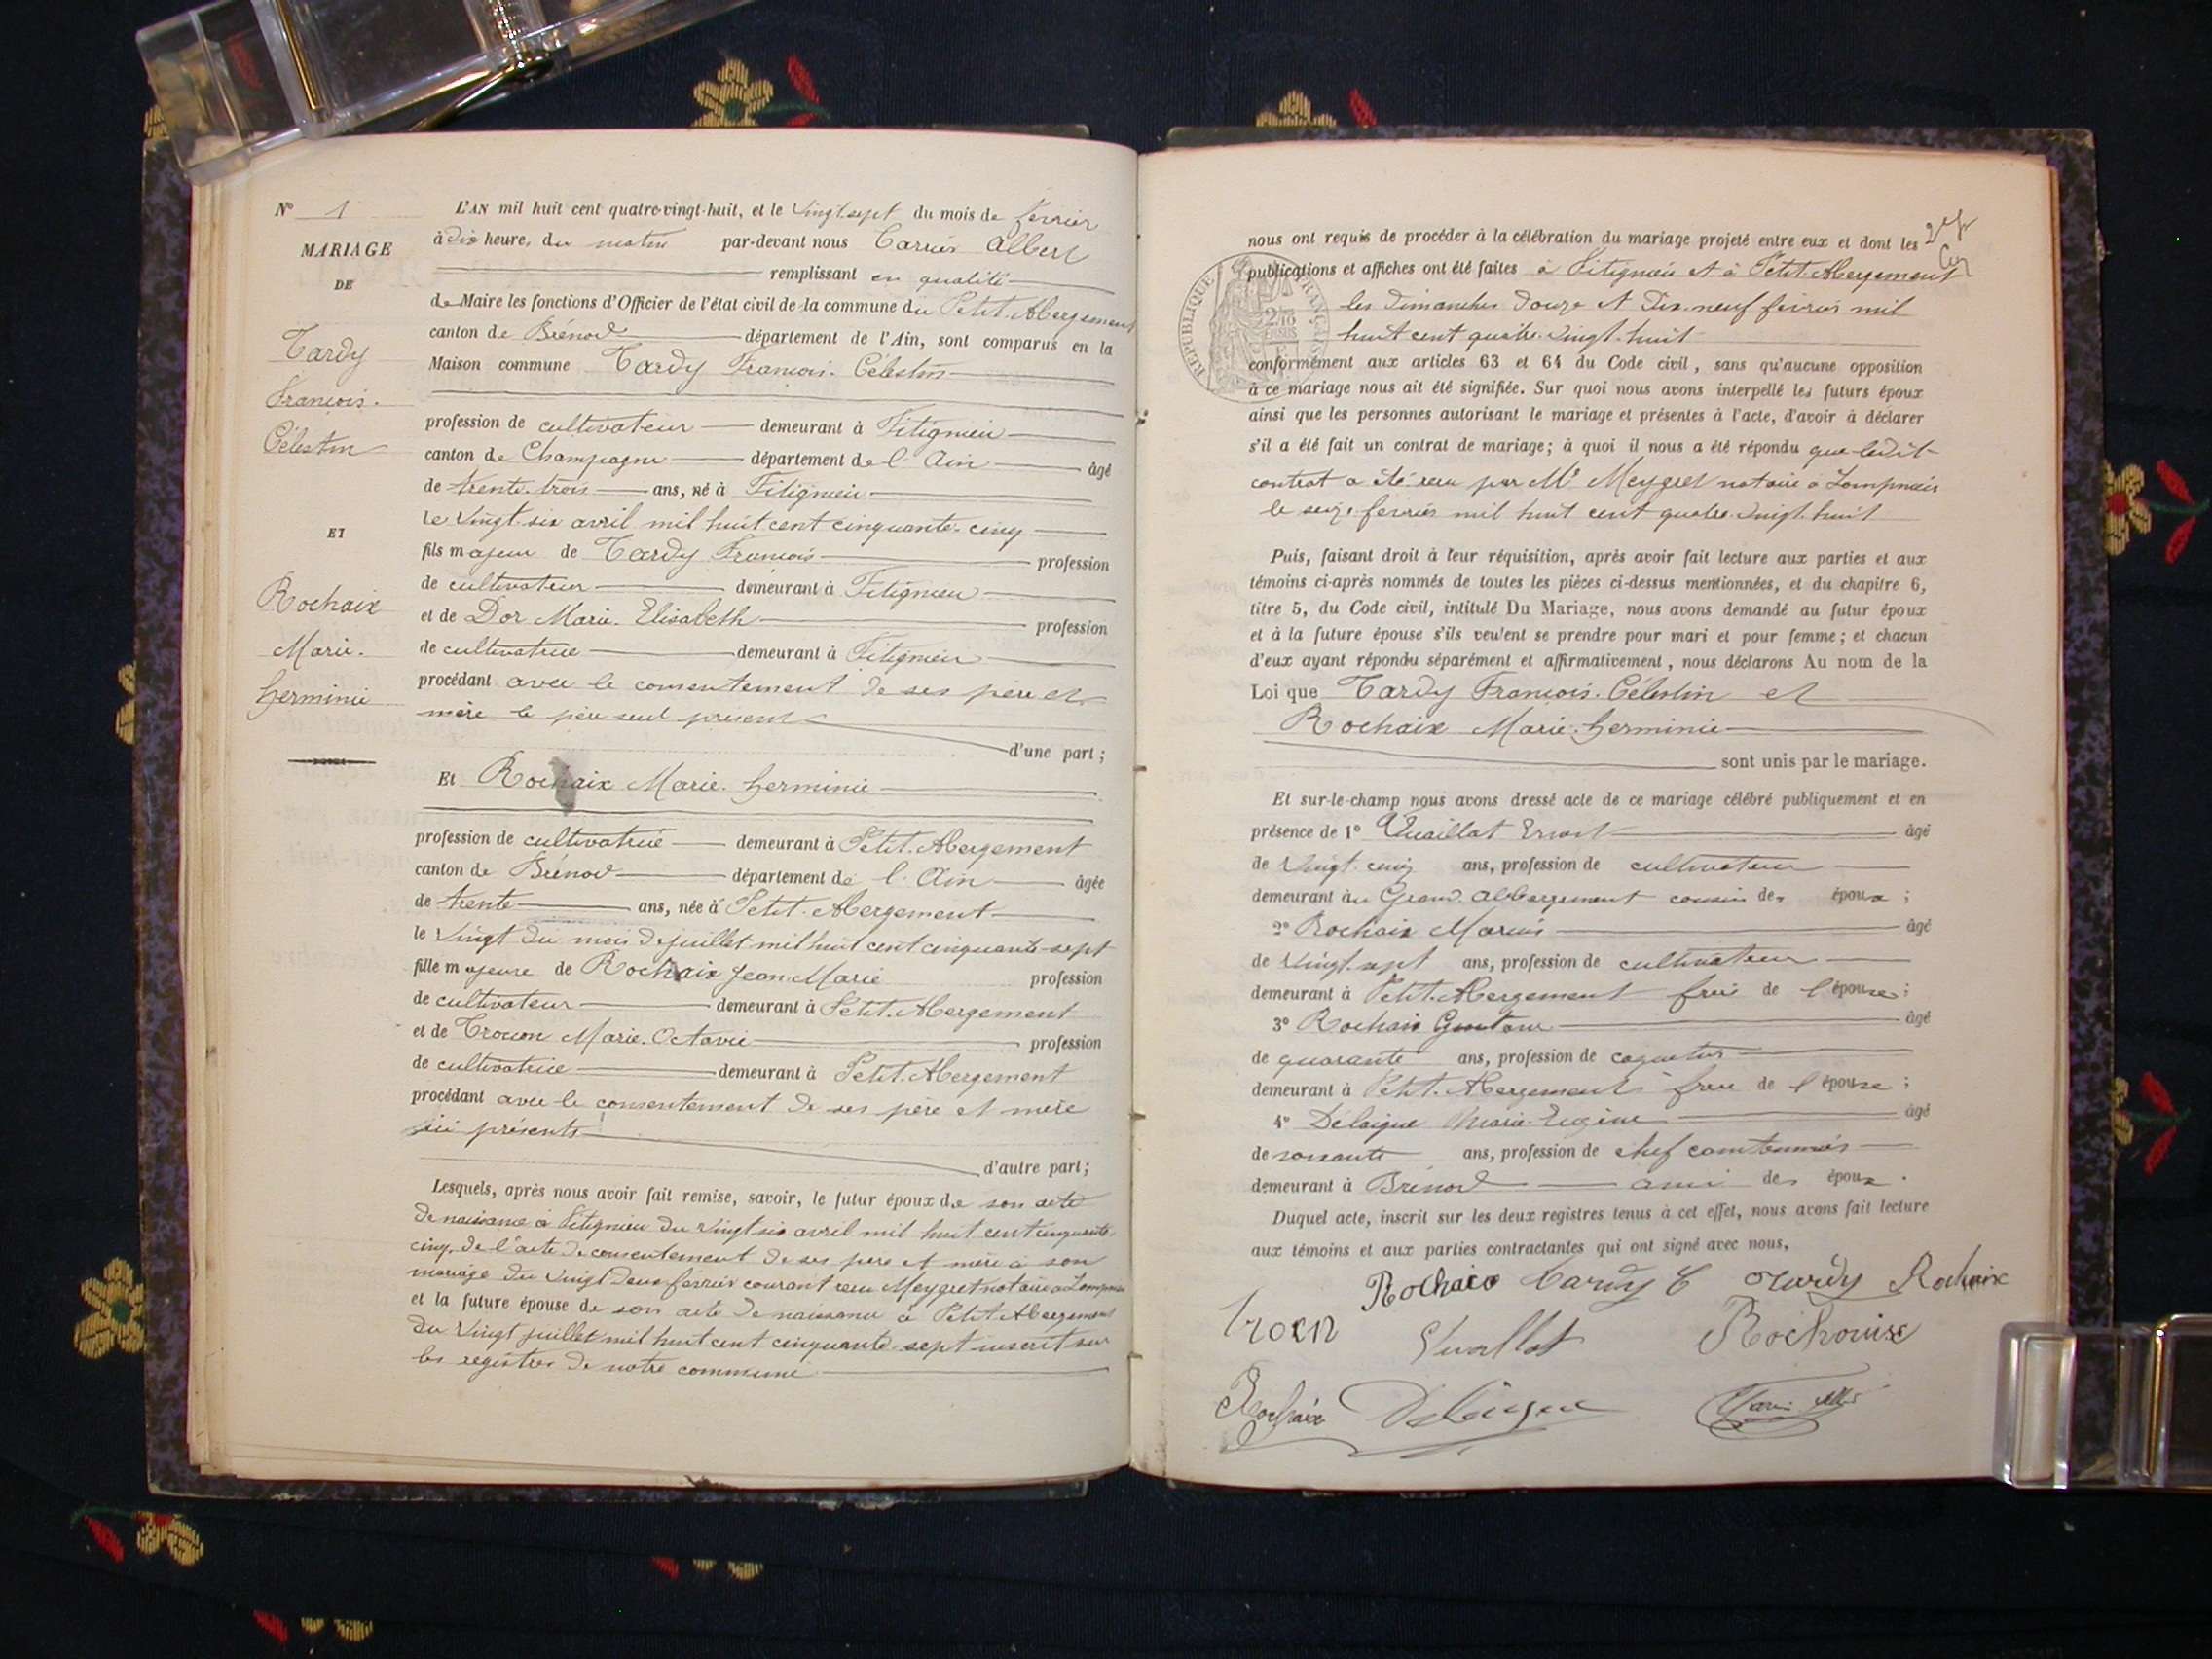 N° 1
MARIAGE
DE
Tardy
François.
Célestin
ET
Rochaix
Marie.
herminie
L'AN mil huit cent quatre-vingt-huit, et le vingt sept du mois de février
à dix heure, du matin par-devant nous Carrier Albert
remplissant en qualité
de Maire les fonctions d'Officier de l'état civil de la commune du Petit. Abergement
canton de Brénod département de l'Ain, sont comparus en la
Maison commune Tardy François. Célestin
profession de cultivateur demeurant à Fitignieu
canton de Champagne département de l'Ain âgé
de trente. trois ans, né à Fitignieu
le vingt. six avril mil huit cent cinquante. cinq
fils majeur de Tardy François profession
de cultivateur demeurant à Fitignieu
et de Dor Marie. Elisabeth profession
de cultivatrice demeurant à Fitignieu
procédant avec le consentement de ses père et
mère le père seul présent
d'une part ;
Et Rochaix Marie. herminie
profession de cultivatrice demeurant à Petit. Abergement
canton de Brénod département de l'Ain âgée
de trente ans, née à Petit. Abergement
le vingt du mois de juillet mil huit cent cinquante-sept
fille majeure de Rochaix Jean Marie profession
de cultivateur demeurant à Petit. Abergement
et de Marie. Octavie profession
de cultivatrice demeurant à Petit. Abergement
procédant avec le consentement de ses père et mère
ici présents
d'autre part ;
Lesquels, après nous avoir fait remise, savoir, le futur époux de son acte
de naissance à Fitignieu du vingt six avril mil huit cent cinquante.
cinq, de l'acte de consentement de ses père et mère à son
mariage du vingt deux février courant reçu Meygret notaire à
et la future épouse de son acte de naissance à Petit Abergement
du vingt juillet mil huit cent cinquante. sept inscrit sur
les registres de notre commune
nous ont requis de procéder à la célébration du mariage projeté entre eux et dont les
publications et affiches ont été faites à Fitignieu et à Petit. Abergement
les dimanches douze et dix. neuf février mil
huit cent quatre. vingt. huit
conformément aux articles 63 et 64 du Code civil, sans qu'aucune opposition
à ce mariage nous ait été signifiée. Sur quoi nous avons interpellé les futurs époux
ainsi que les personnes autorisant le mariage et présentes à l'acte, d'avoir à déclarer
s'il a été fait un contrat de mariage ; à quoi il nous a été répondu que ledit
contrat a été reçu par Me Meygret notaire à Lompnieu
le seize février mil huit cent quatre. vingt. huit
Puis, faisant droit à leur réquisition, après avoir fait lecture aux parties et aux
témoins ci-après nommés de toutes les pièces ci-dessus mentionnées, et du chapitre 6,
titre 5, du Code civil, intitulé Du Mariage, nous avons demandé au futur époux
et à la future épouse s'ils veulent se prendre pour mari et pour femme ; et chacun
d'eux ayant répondu séparément et affirmativement, nous déclarons Au nom de la
Loi que Tardy François. Célestin et
Rochaix Marie. herminie
sont unis par le mariage.
Et sur-le-champ nous avons dressé acte de ce mariage célébré publiquement et en
présence de 1° Vuaillat Ernest âgé
de vingt. cinq ans, profession de cultivateur
demeurant au Grand Abergement cousin des époux ;
2° Rochaix Marius âgé
de vingt. sept ans, profession de cultivateur
demeurant à Petit. Abergement frère de l'épouse ;
3° Rochaix Gustave âgé
de quarante ans, profession de
demeurant à Petit. Abergement frère de l'épouse ;
4° Delaigue Marie Eugène âgé
de soixante ans, profession de chef cantonnier
demeurant à Brénod ami des époux.
Duquel acte, inscrit sur les deux registres tenus à cet effet, nous avons fait lecture
aux témoins et aux parties contractantes qui ont signé avec nous,
Rochaix Tardy C Tardy Rochaix
Rochaix
Rochaix Delaigue
RÉPUBLIQUE FRANÇAISE